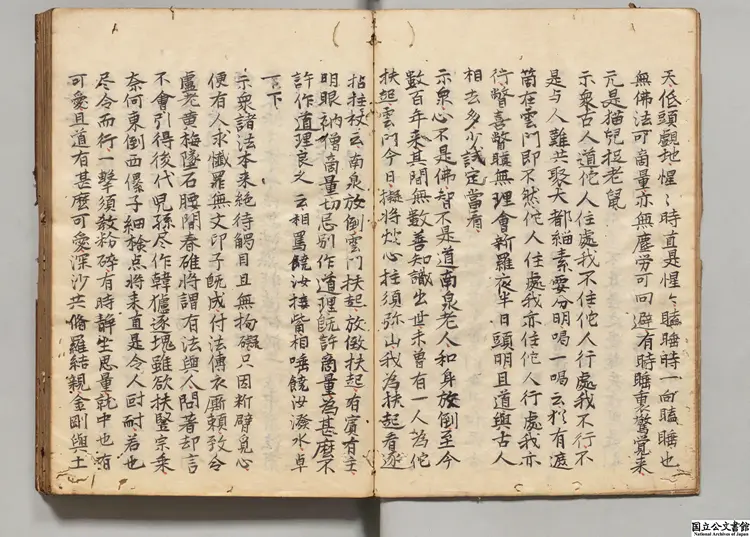 天低頭覷地惺〻時直是惺〻瞌睡時一向瞌睡也
無佛法可商量亦無塵勞可回避有時睡裏驚覺来
元是猫兒捉老鼠
示衆古人道佗人住處我不住佗人行處我不行不
是与人難共聚大都緇素要分明喝一喝云猶有這
箇在雲門即不然佗人住處我亦住佗人行處我亦
行瞥喜瞥瞋無理會新羅夜半日頭明且道與古人
相去多少試定當看
示衆心不是佛智不是道南泉老人和身放倒至今
數百年来其間無數善知識出世未曽有一人為佗
扶起雲門今日擬將蚊心拄須弥山我為扶起看遂
拈拄杖云南泉放倒雲門扶起放倒扶起有賓有主
明眼衲僧商量切忌別作道理既許商量為甚麼不
許作道理良久云相罵饒汝接觜相唾饒汝潑水卓
一下
示衆諸法本来絶待觸目且無拘礙只因斬臂覓心
便有人求懺罪無文印子既成付法傳衣廝賴致令
盧老黄梅墜石腰間舂碓將謂有法與人問著却言
不會引得後代兒孫尽作韓獹逐塊雖欲扶竪宗乗
奈何東倒西㒧子細検点將来直是令人叵耐若也
尽令而行一擊須教粉碎有時靜坐思量就中也有
可愛且道有甚麼可愛深沙共脩羅結親金剛與土
国立公文書館
National Archives of Japan